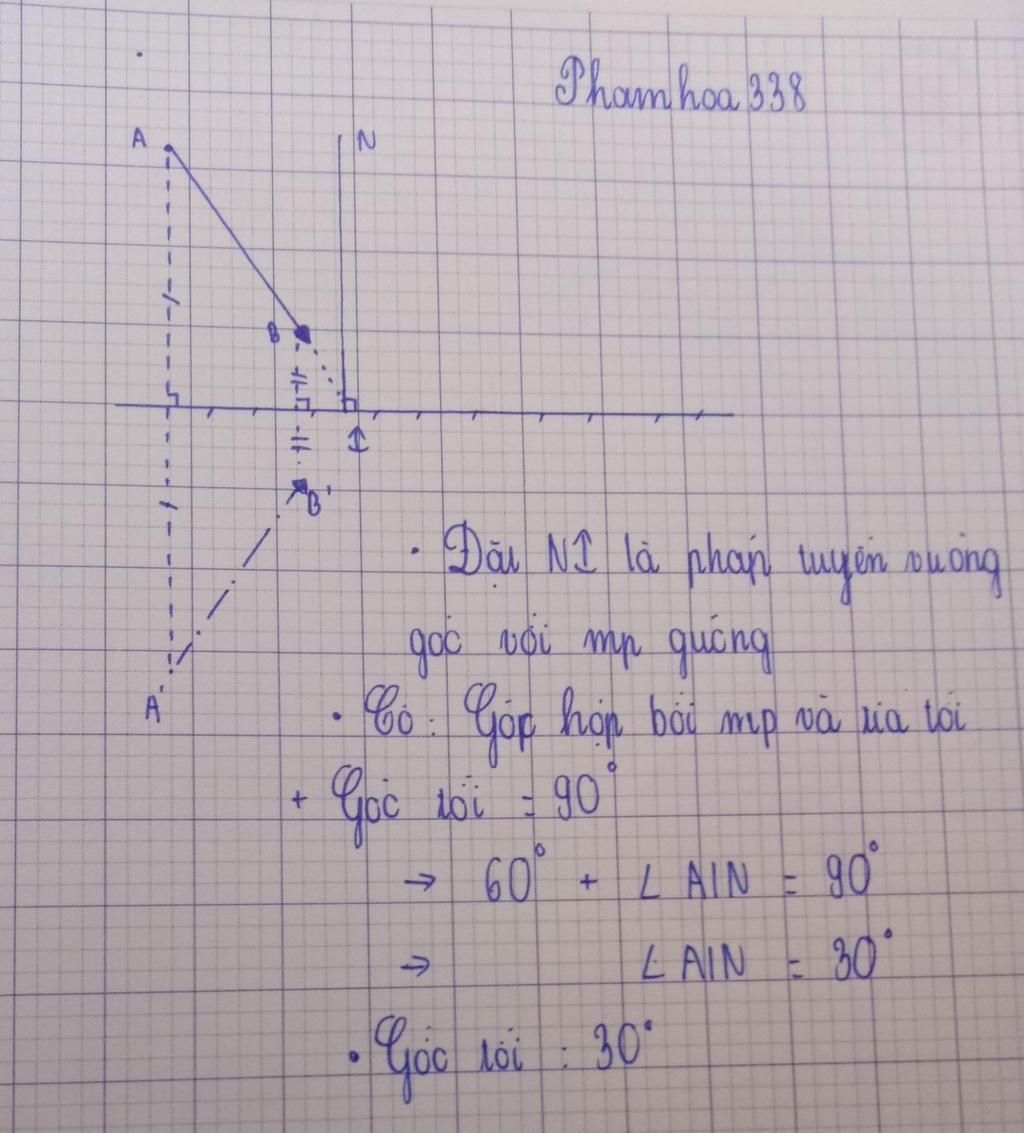 Phamhoa338
A
N
B
I
B'
A'
• Đặt NI là pháp tuyến vuông
góc với mp gương
• Có: Góc hợp bởi mp và tia tới
+ Góc tới = 90°
→ 60° + ∠AIN = 90°
→ ∠AIN = 30°
• Góc tới : 30°